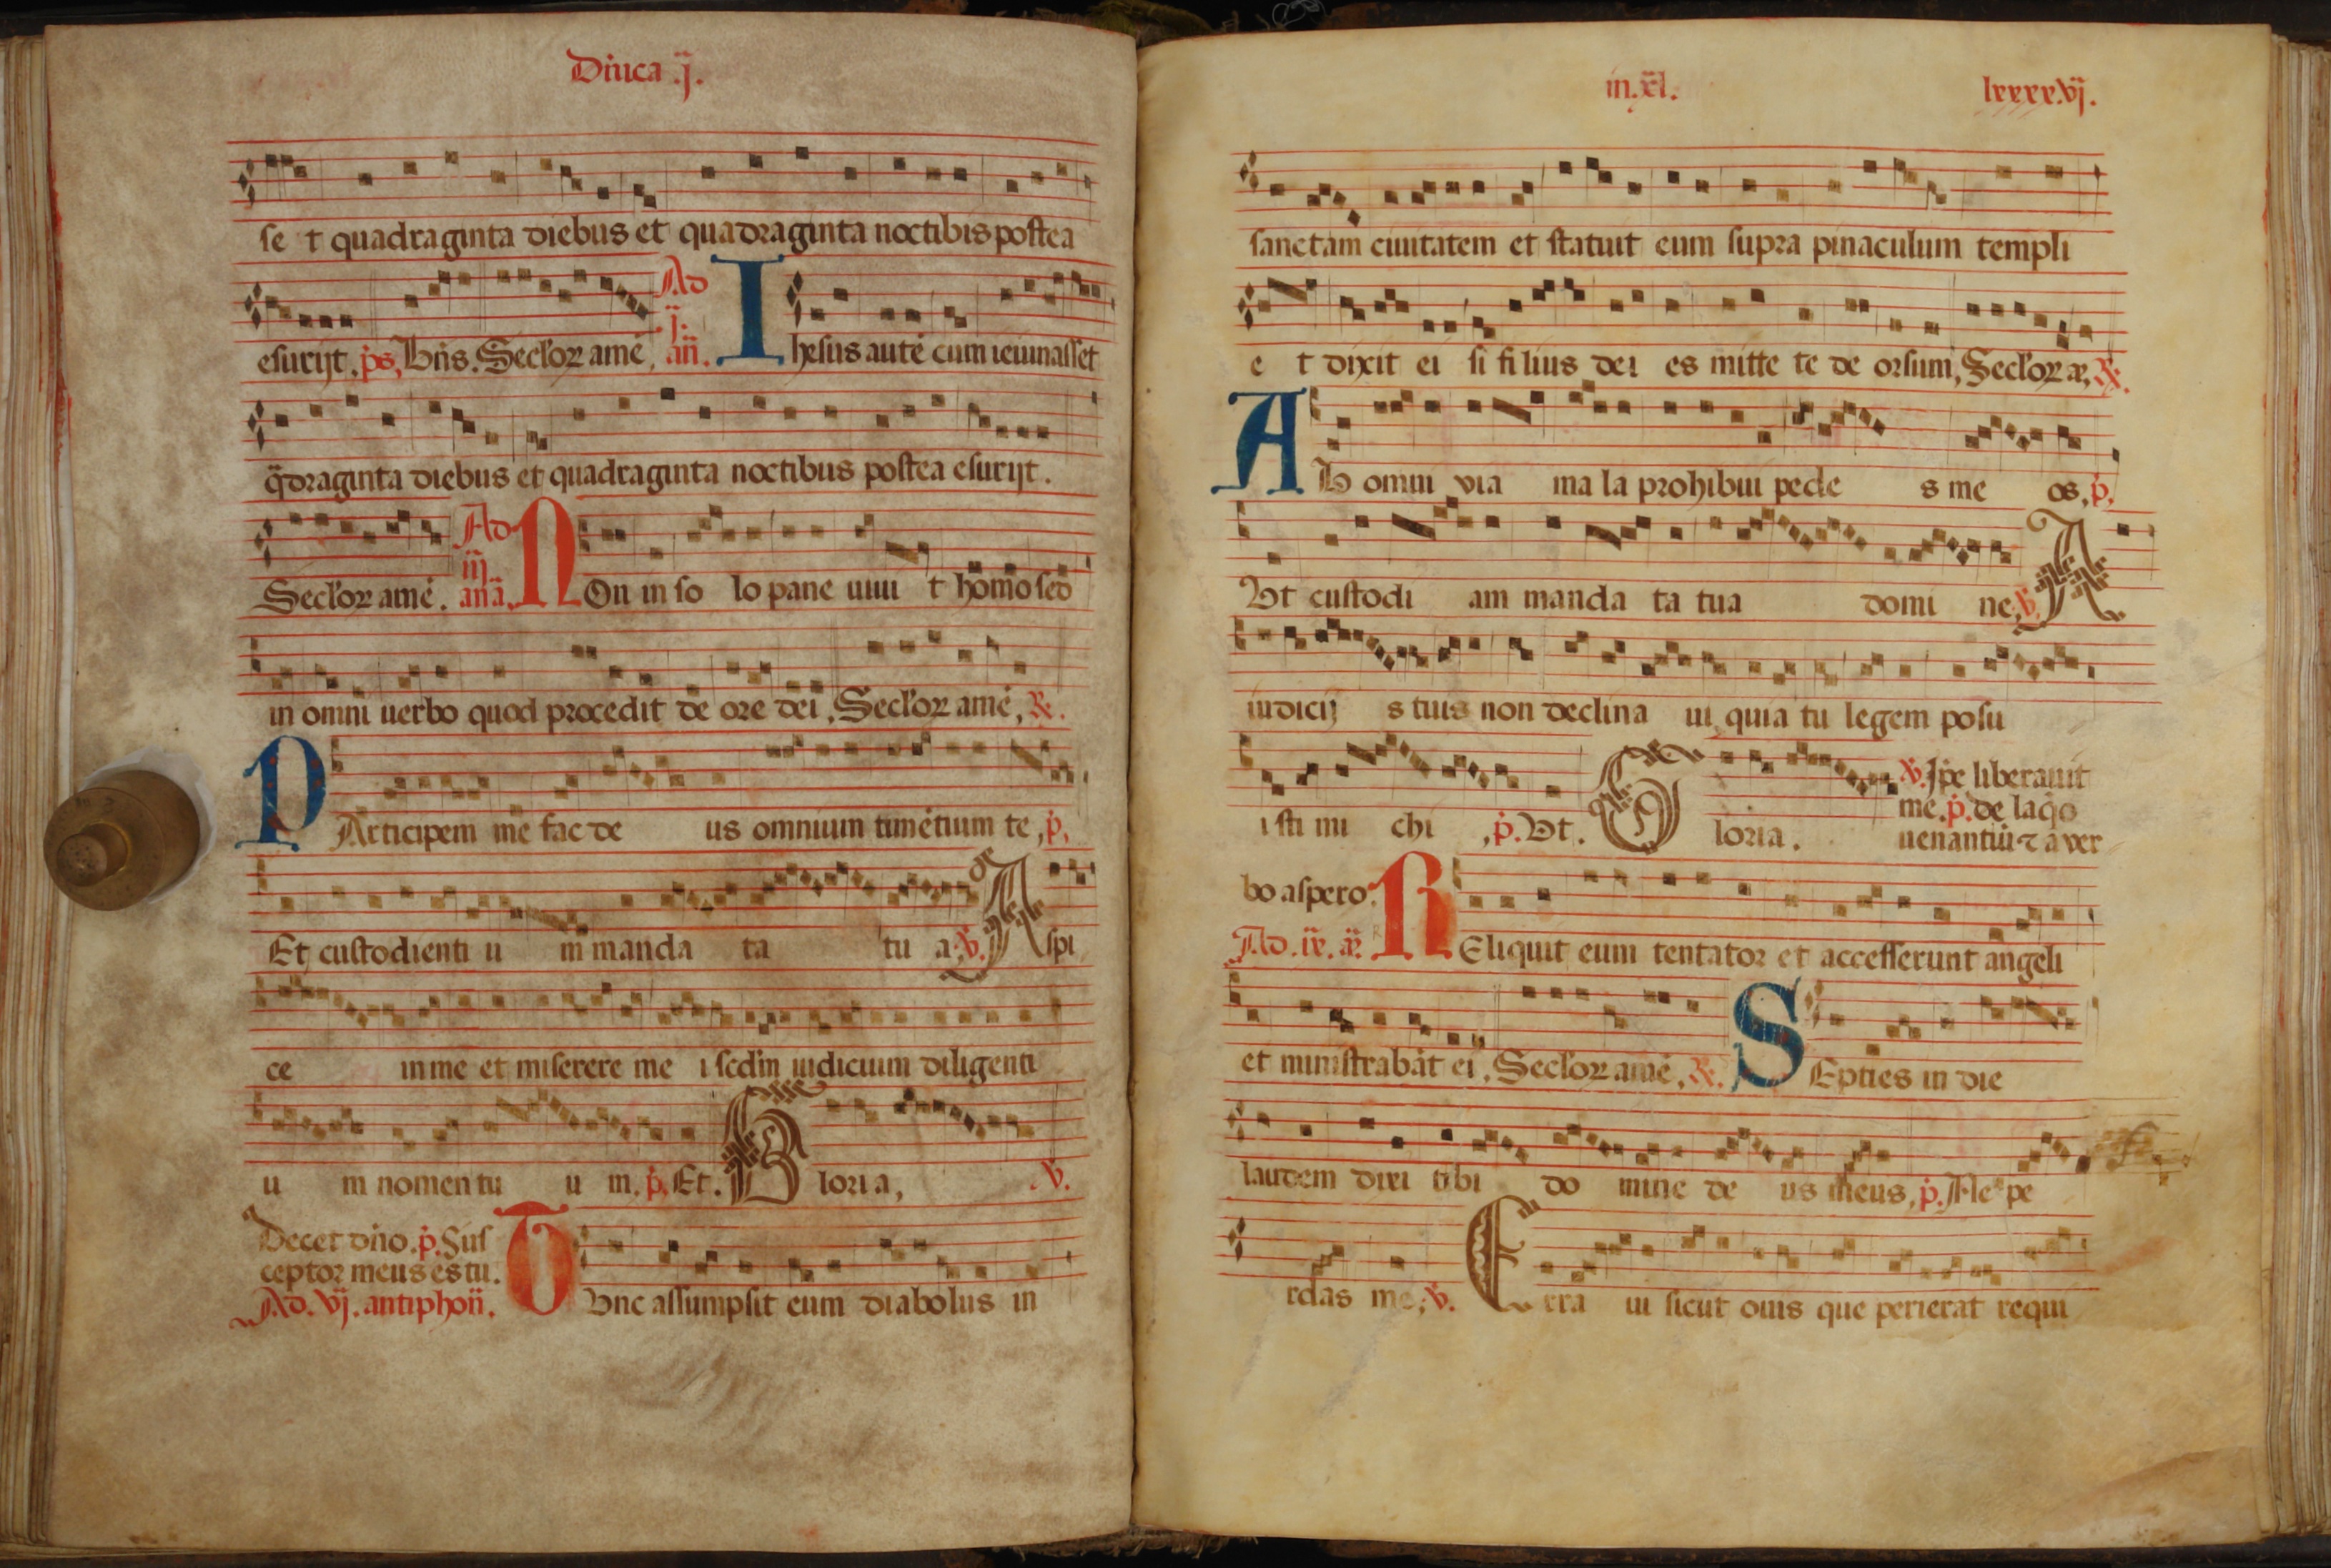 Dnica .j.
se t quadraginta diebus et quadraginta noctibus postea
esurijt. ps. Bns. Seclor ame. Ad j. an. Ihesus aute cum ieiunasset
qdraginta diebus et quadraginta noctibus postea esurijt.
Seclor ame. Ad iij. ana. NOn in so lo pane uiui t homo sed
in omni uerbo quod procedit de ore dei. Seclor ame. R.
PArticipem me fac de us omnium timetium te. p.
Et custodienti u m manda ta tu a. v. Aspi
ce in me et miserere me i scdm iudicium diligenti
u m nomen tu u m. p. Et. Gloria. v.
Decet dno. p. Sus
ceptor meus es tu.
Ad. vj. antiphon. Tvnc assumpsit eum diabolus in
in .xl. lxxxxvj.
sanctam ciuitatem et statuit eum supra pinaculum templi
e t dixit ei si filius dei es mitte te de orsum. Seclor ae. R.
AB omni via ma la prohibui pede s me os. p.
Vt custodi am manda ta tua domi ne. v. A
iudicij s tuis non declina ui quia tu legem posu
isti mi chi. p. Vt. Gloria. v. Ipe liberauit
me. p. de laqo
uenantiu t a ver
bo aspero.
Ad. ix. a. REliquit eum tentator et accesserunt angeli
et ministrabat ei. Seclor ame. R. SEpties in die
laudem dixi tibi do mine de us meus. p. Ne pe
rdas me. v. Erra ui sicut ouis que perierat requi